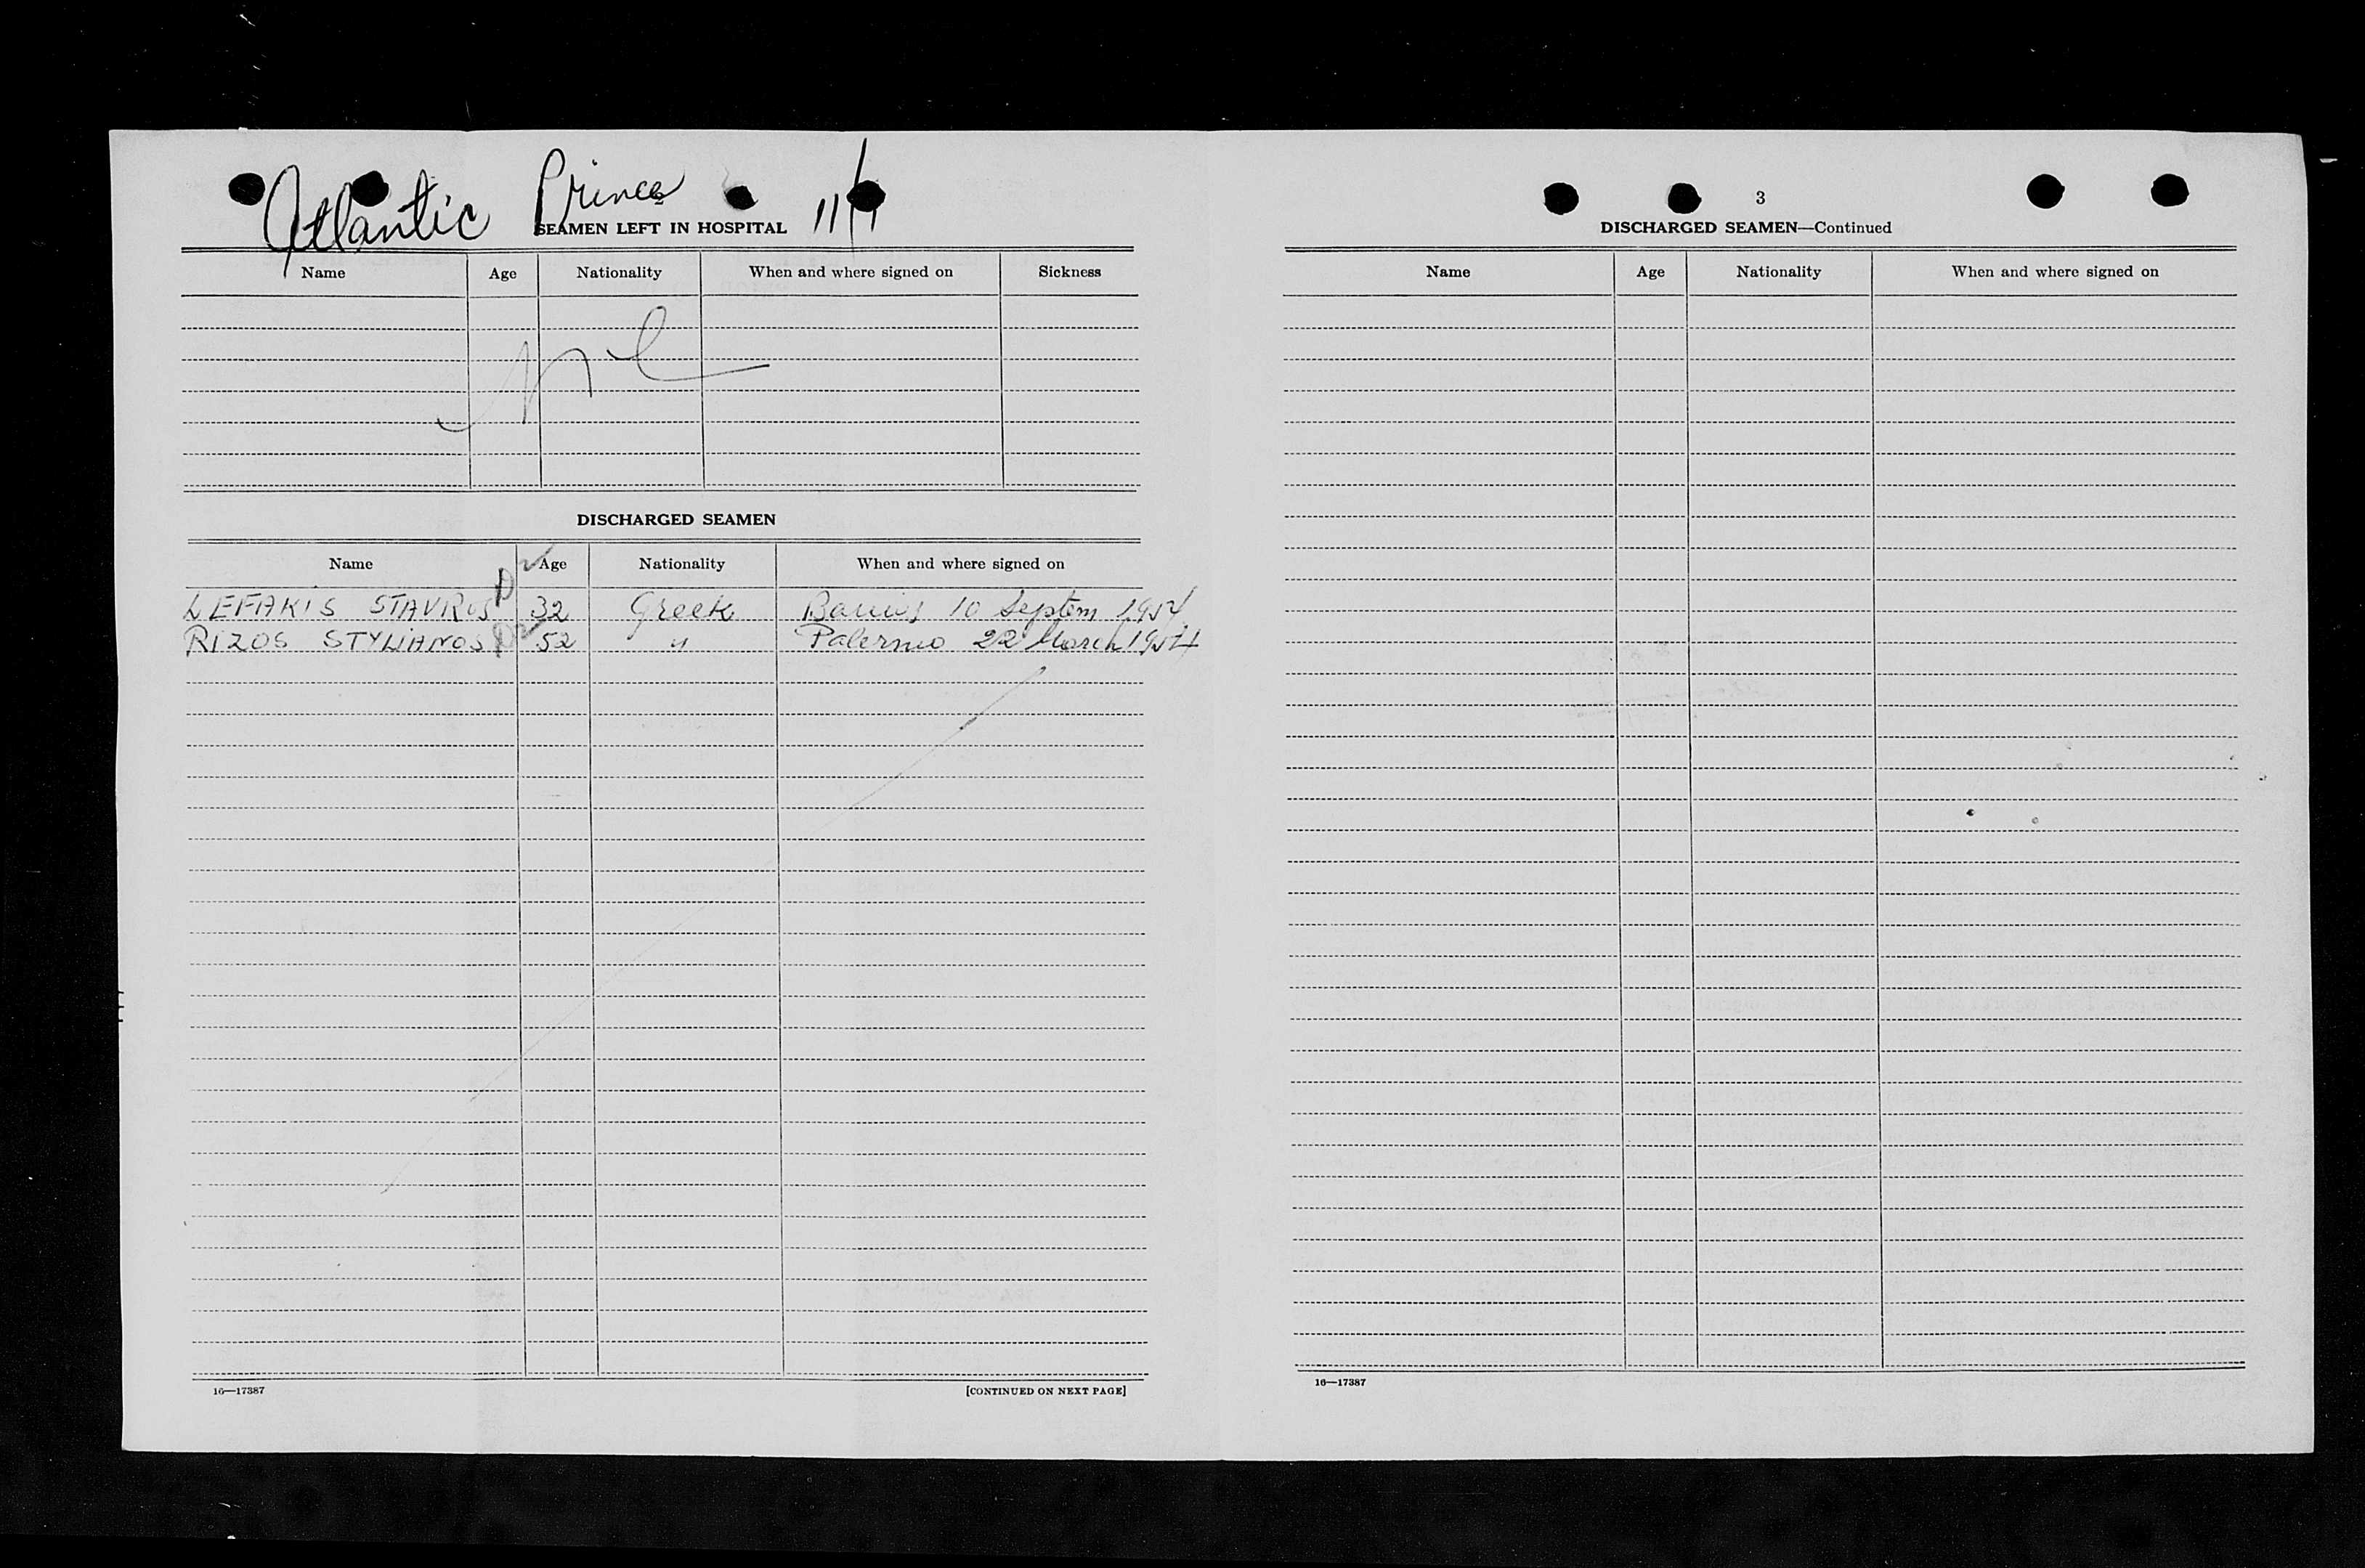 Atlantic Prince
SEAMEN LEFT IN HOSPITAL
Name Age Nationality When and where signed on Sickness
DISCHARGED SEAMEN
Name Age Nationality When and where signed on
LEFAKIS STAVROS 32 Greek 10 Septem 1954
RIZOS STYLIANOS 52 " Palermo 22 March 1954
16—17387 [CONTINUED ON NEXT PAGE]
3
DISCHARGED SEAMEN—Continued
Name Age Nationality When and where signed on
16—17387